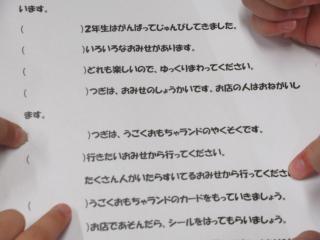 います。
(　　　　　)2年生はがんばってじゅんびしてきました。
(　　　　　)いろいろなおみせがあります。
(　　　　　)どれも楽しいので、ゆっくりまわってください。
(　　　　　)つぎは、おみせのしょうかいです。お店の人はおねがいし
ます。
)つぎは、うごくおもちゃランドのやくそくです。
(　　　　　)行きたいおみせから行ってください。
たくさん人がいたらすいてるおみせから行ってください。
(　　　　　)うごくおもちゃランドのカードをもっていきましょう。
)お店であそんだら、シールをはってもらいましょう。